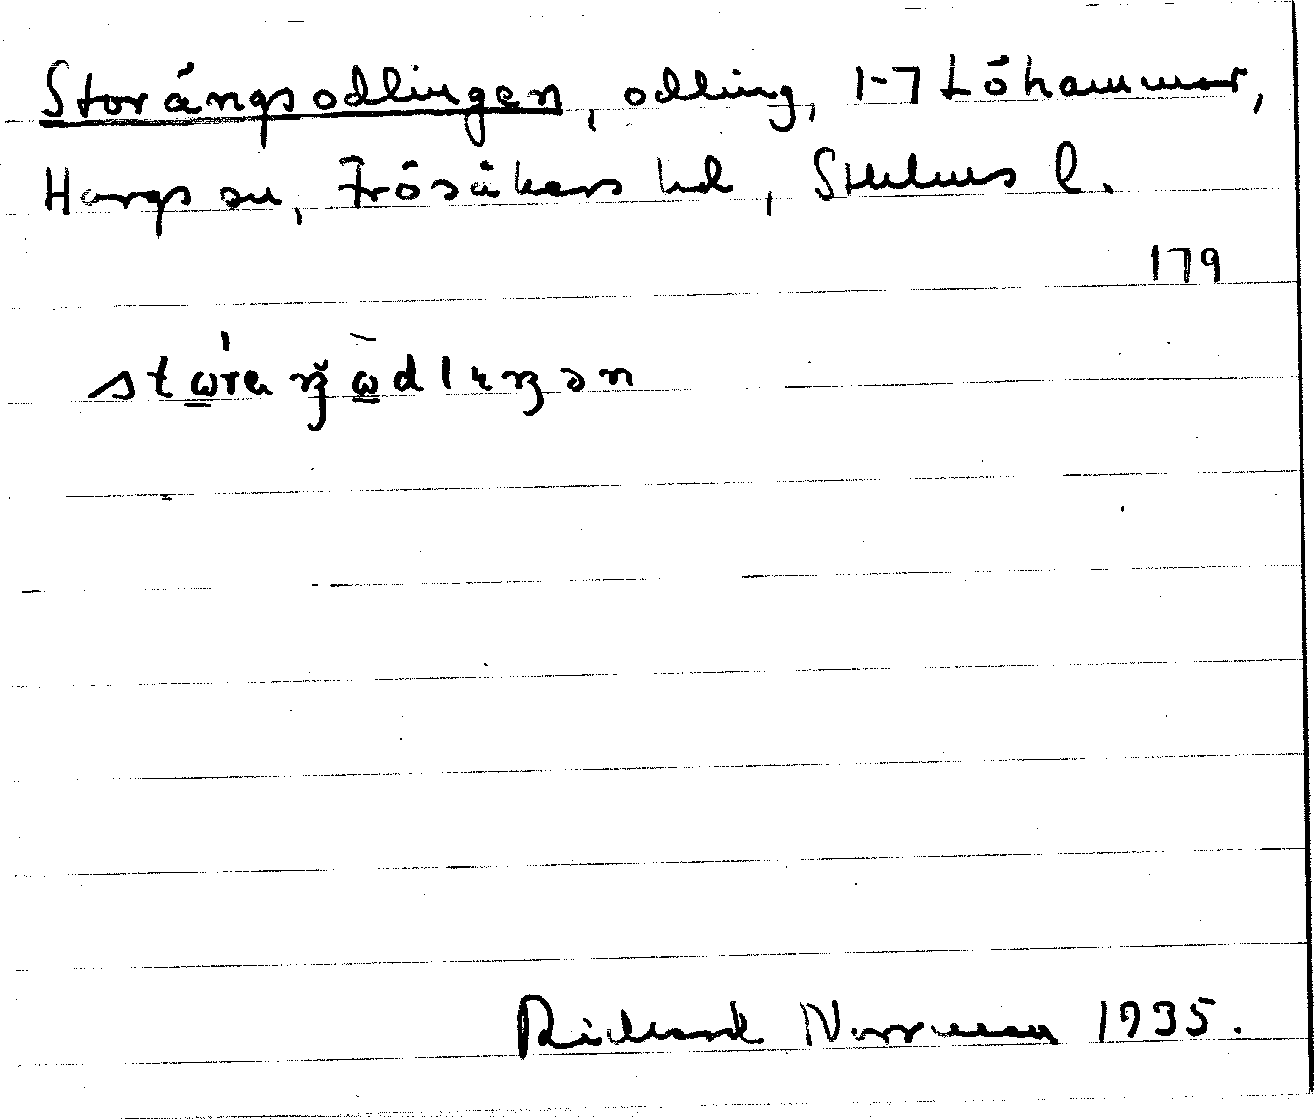 Storängsodlingen, odling, 1-7 Löhammar,
Hargs sn, Frösåkers hd, Sthlms l.
179
Richard Norrman 1935.